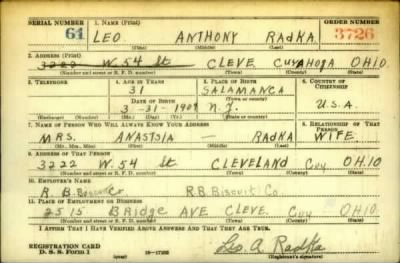 SERIAL NUMBER 1. NAME (Print) ORDER NUMBER
61 LEO ANTHONY RADKA 3726
(First) (Middle) (Last)
2. ADDRESS (Print)
3222 W. 54 St CLEVE CUYAHOGA OHIO.
(Number and street or R. F. D. number) (Town) (County) (State)
3. TELEPHONE 4. AGE IN YEARS 5. PLACE OF BIRTH 6. COUNTRY OF CITIZENSHIP
31 SALAMANCA
DATE OF BIRTH (Town or county)
3-31-1909 N.Y. U.S.A.
(Exchange) (Number) (Mo.) (Day) (Yr.) (State or country)
7. NAME OF PERSON WHO WILL ALWAYS KNOW YOUR ADDRESS 8. RELATIONSHIP OF THAT PERSON
MRS. ANASTSIA — RADKA WIFE
(Mr., Mrs., Miss) (First) (Middle) (Last)
9. ADDRESS OF THAT PERSON
3222 W. 54 St CLEVELAND Cuy OHIO
(Number and street or R. F. D. number) (Town) (County) (State)
10. EMPLOYER'S NAME
R. B. Biscuit Co R.B. Biscuit Co.
11. PLACE OF EMPLOYMENT OR BUSINESS
2515 Bridge AVE CLEVE. Cuy OHIO.
(Number and street or R. F. D. number) (Town) (County) (State)
I AFFIRM THAT I HAVE VERIFIED ABOVE ANSWERS AND THAT THEY ARE TRUE.
REGISTRATION CARD
D. S. S. Form 1 Leo. A. Radka
(Registrant's signature)